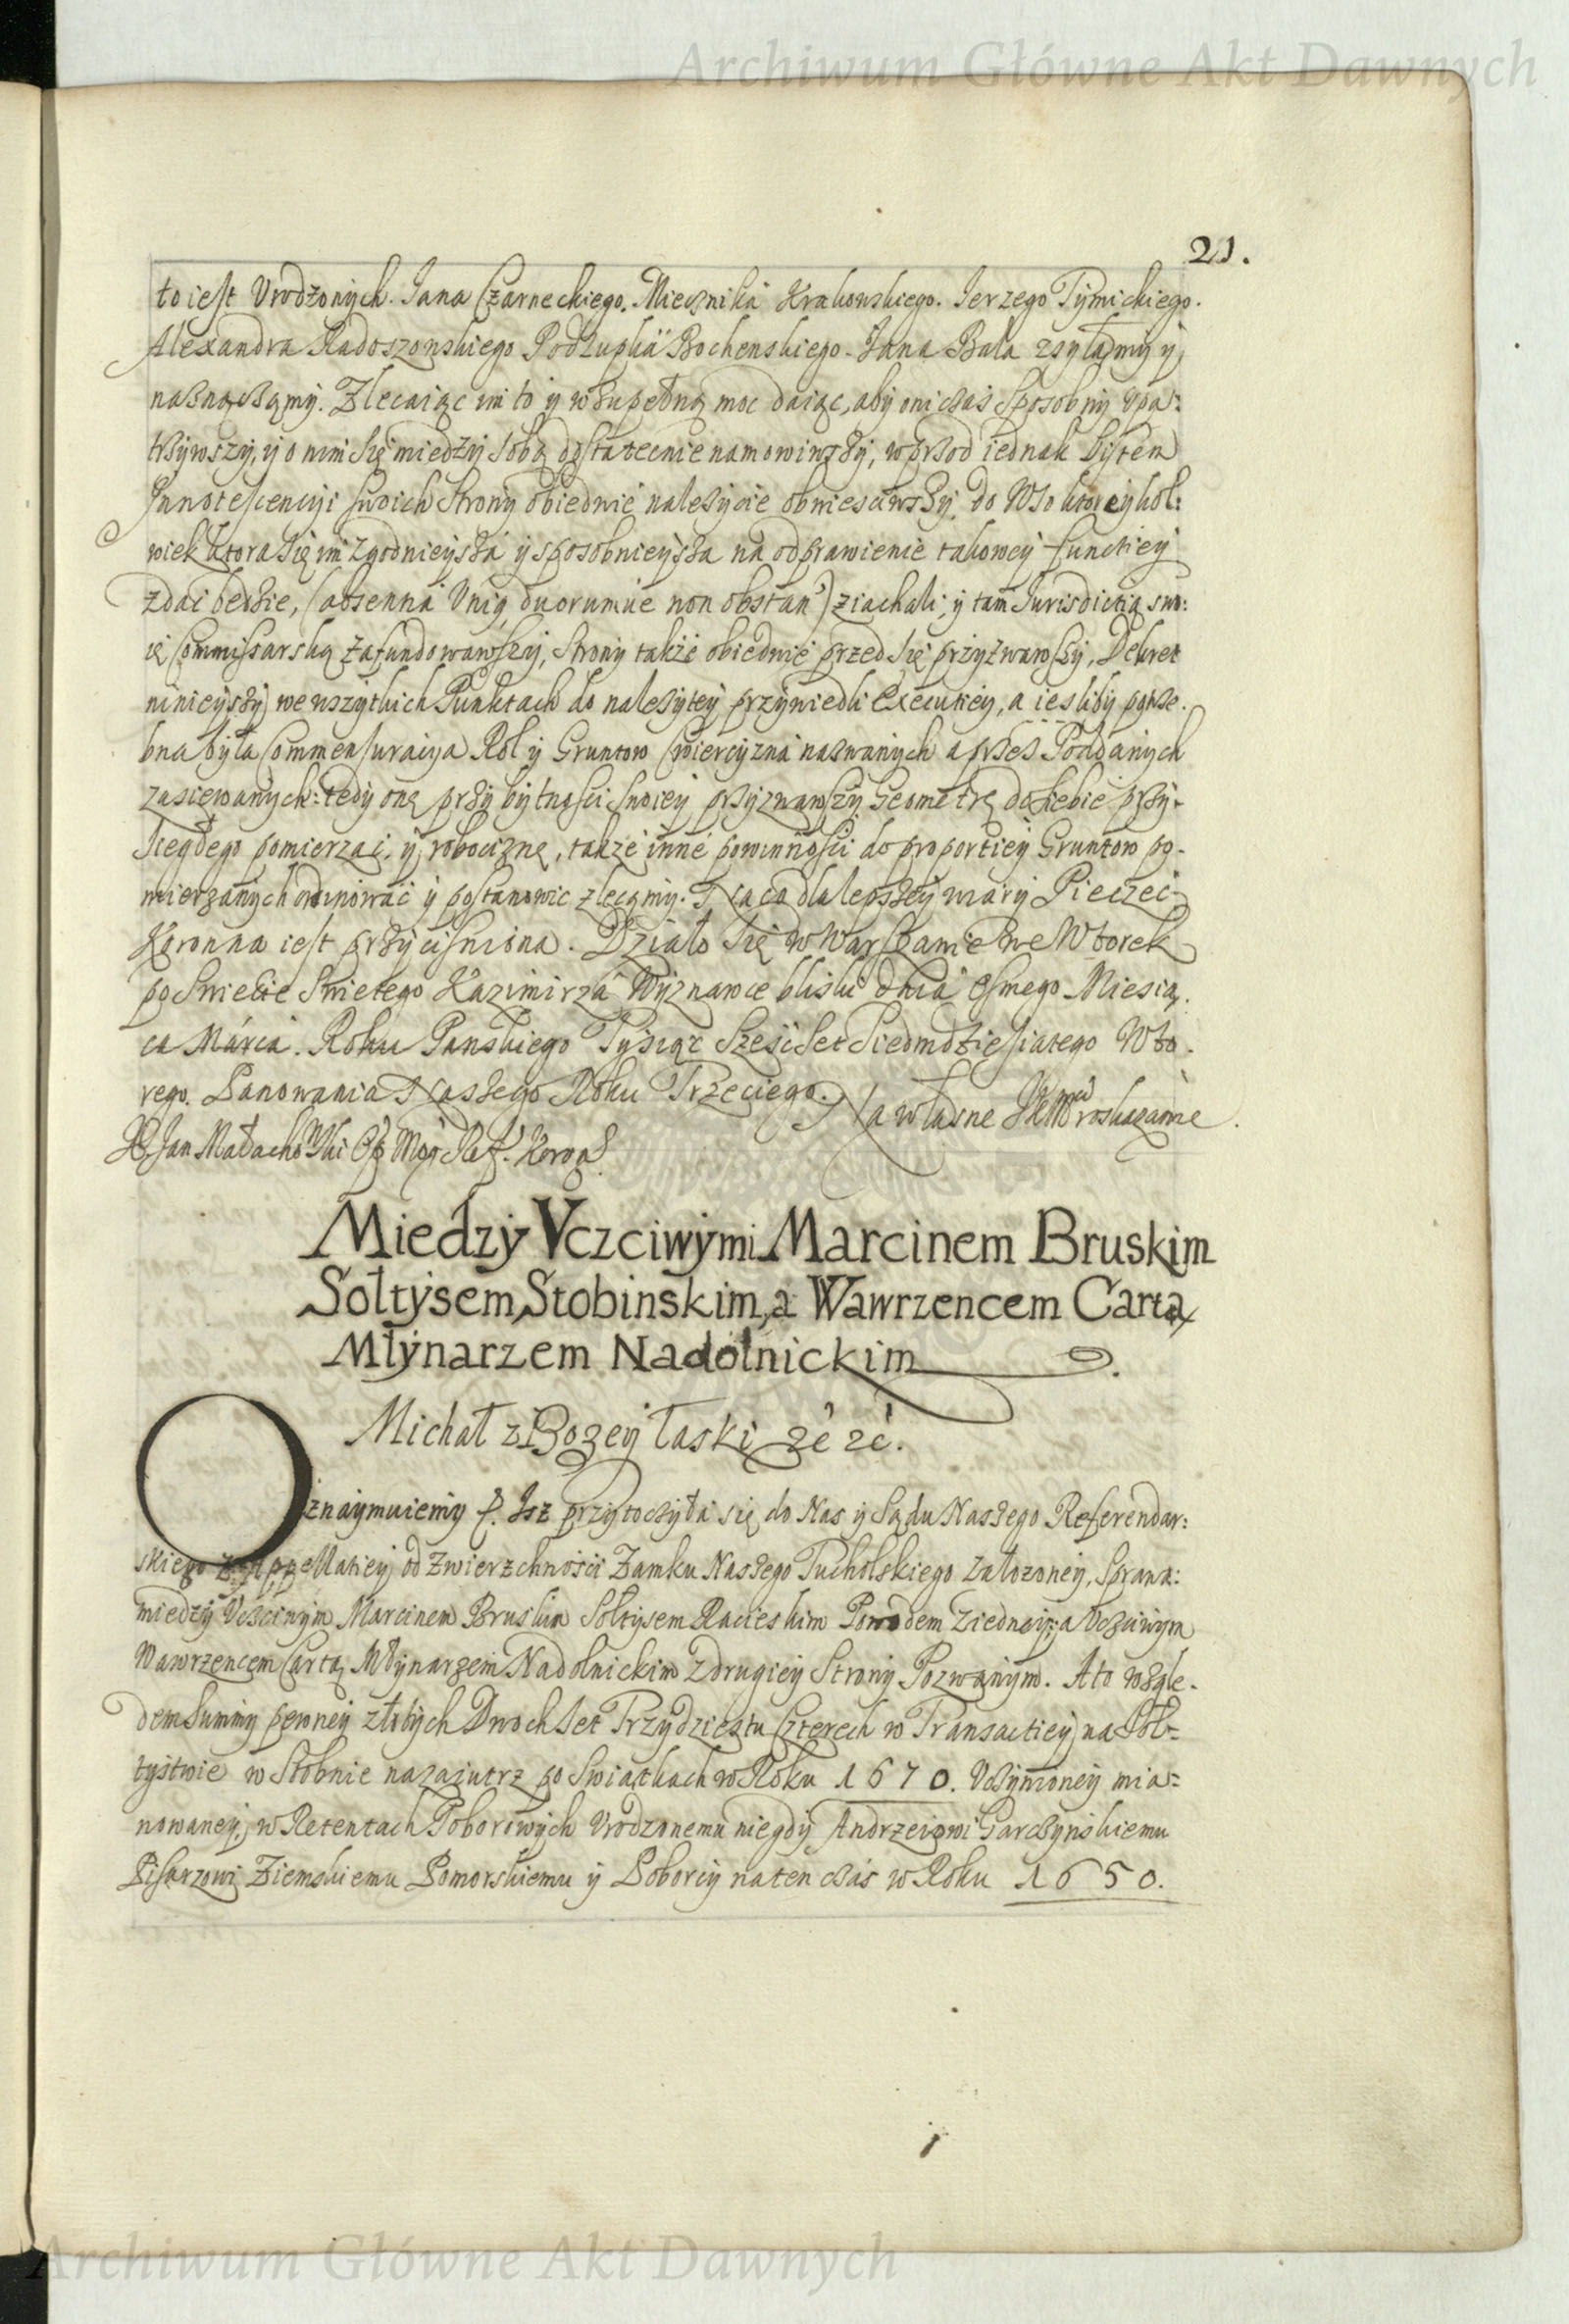 Archiwum Główne Akt Dawnych
21.
to iest Vrodzonych. Jana Czarneckiego. Miecznika Krakowskiego. Jerzego Tymickiego.
Alexandra Radoszowskiego Podżupka Bochenskiego. Jana Bala zsyłamy y
naznaczamy. Zlecaiąc im to y w zupełną moc daiąc, aby oni czas sposobny vpa:
trzywszy, y o nim się miedzy sobą dostatecnie namowiwszy, wprzod iednak listem
Innotescencyi swoich Strony obiedwie nalezycie obwiesciwszy, do Wło ktoreykol:
wiek ktora się im zgodnieysza y sposobnieysza na odprawienie takowey functiey
zdać bedzie, (absentia Vnią, duorumue non obstan) ziachali, y tam Jurisdictią swo:
ię Commissarską zafundowawszy, Strony także obiedwie przed się przyzwawszy, Dekret
ninieyszy we wszytkich Punktach do nalezytey przywiedli Executiey, a iesliby potrze.
bna była Commensuracya Rol y Gruntow Cwiercyzna nazwanych a przes Poddanych
zasiewanych: tedy onę przy bytnosci swoiey przyzwawszy Geometrę do siebie przy-
sięgłego pomierzać, y robociznę, także inne powinności do proportiey Gruntow po-
mierzanych ordinować y postanowic zlecamy. Na co dla lepszey wiary Pieczęć
Koronna iest przycisniona. Działo się w Warszawie we Wtorek
po Swiecie Swietego Kazimirza Wyznawce blisku dnia Osmego Miesią.
ca Marca. Roku Panskiego Tysiąc Sześć Set Siedmdziesiatego Wto.
rego. Panowania Naszego Roku Trzeciego. Na własne JKMci roskazanie.
X. Jan Małachowski Mog. Ref. Koro.
Miedzy Vczciwymi Marcinem Bruskim
Sołtysem Stobinskim, a Wawrzencem Cartą
Młynarzem Nadolnickim.
Michał z Bozey łaski &c &c.
Oznaymuiemy &. Isz przytoczyła się do Nas y Sądu Naszego Referendar:
skiego z Appellatiey od Zwierzchności Zamku Naszego Tucholskiego założoney, Sprawa:
miedzy Vczciwym Marcinem Bruskim Sołtysem Racieskim Powodem z iedney, a Vczciwym
Wawrzencem Cartą Młynarzem Nadolnickim z drugiey Strony Pozwanym. A to wzglę-
dem Summy pewney złotych Dwoch Set Trzydziestu Czterech w Transactiey na Soł-
tystwie w Stobnie nazaiutrz po Swiątkach w Roku 1670. Vczynioney mia=
nowaney, w Retentach Poborowych Vrodzonemu niegdy Andrzeiowi Garczynskiemu
Pisarzowi Ziemskiemu Pomorskiemu y Poborcy na ten czas w Roku 1650.
Archiwum Główne Akt Dawnych